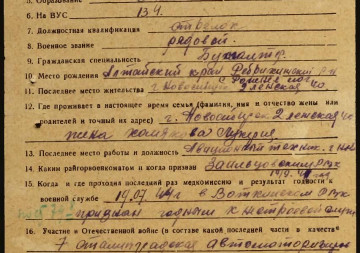 6. На ВУС 134
7. Должностная квалификация стрелок
8. Военное звание рядовой.
9. Гражданская специальность Бухгалтер
10. Место рождения Алтайский край Ребрихинский р-н
11. Последнее место жительства г. Новосибирск
2 Ленская 40
12. Где проживает в настоящее время семья (фамилия, имя и отчество жены или
родителей и точный их адрес) г. Новосибирск 2 Ленская 40
жена
13. Последнее место работы и должность Авиационный техник.
14. Каким райгорвоенкоматом и когда призван Заельцовским РВК
15. Когда и где проходил последний раз медкомиссию и результат годности к
военной службе 19.07 44 г в Воткинском РВК
признан годным к строевой службе
16. Участие в Отечественной войне (в составе какой последней части в качестве
7 Сталинградская автомоторизов